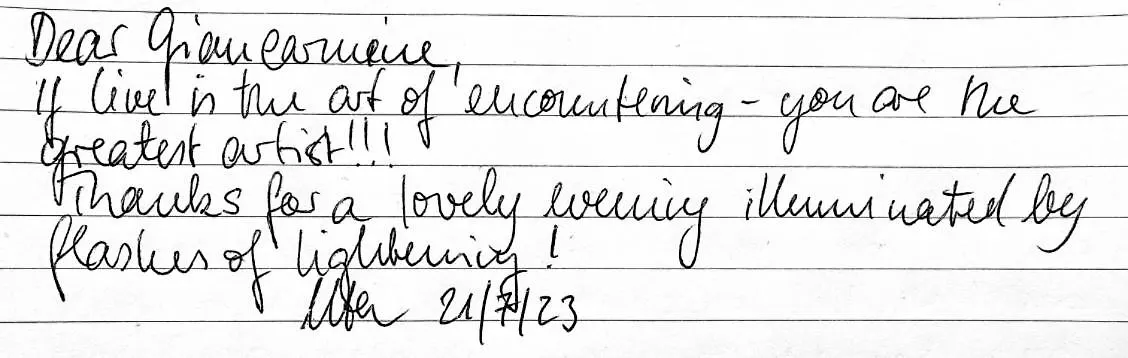 Dear Giancarmine,
If live is the art of encountering - you are the
greatest artist!!!
Thanks for a lovely evening illuminated by
flashes of lightening!
21/7/23